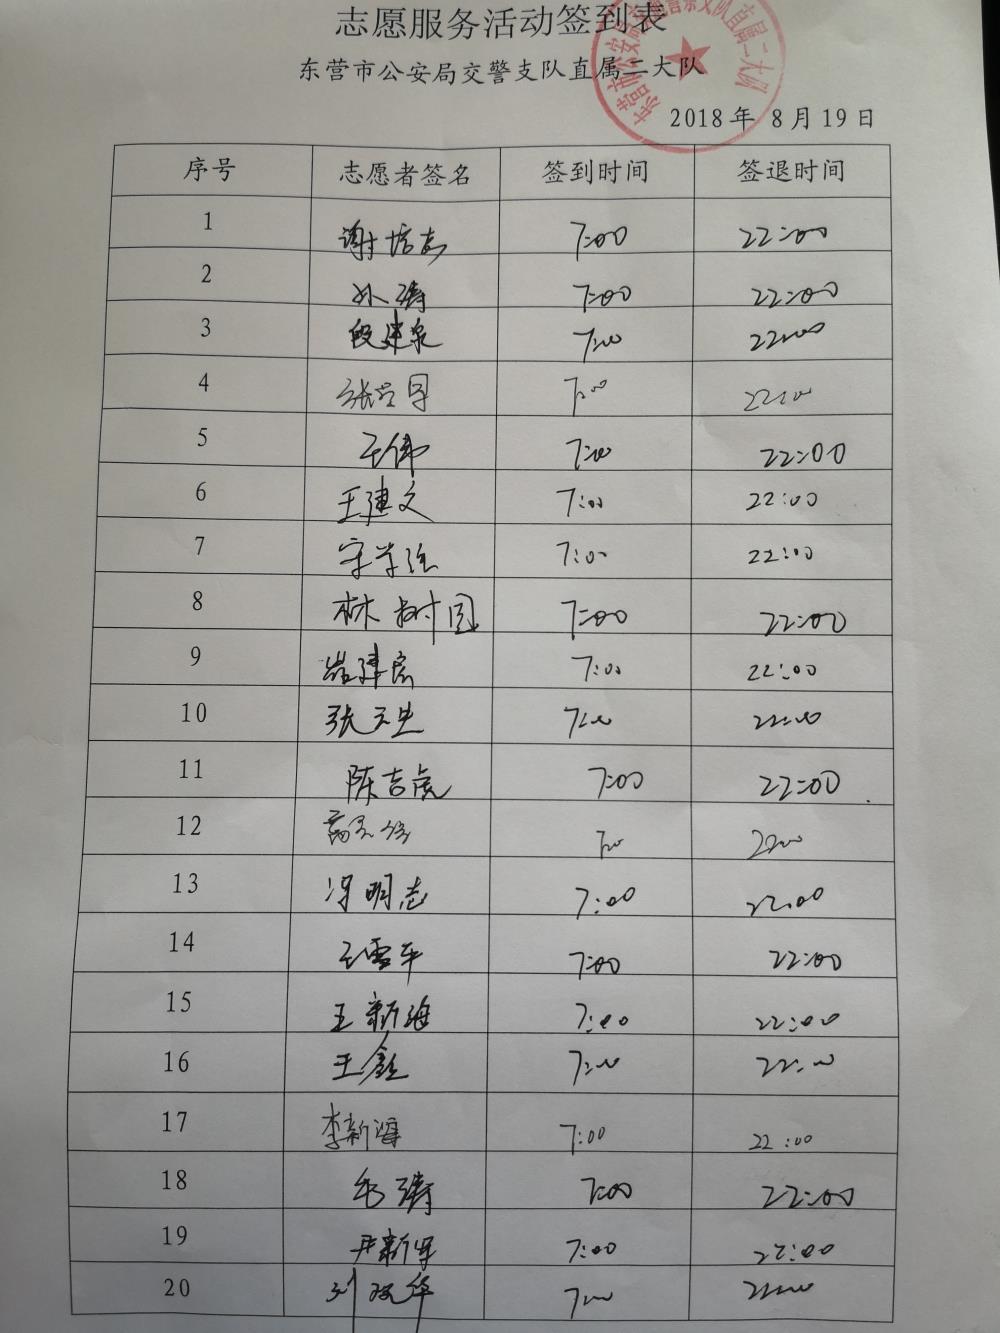 志愿服务活动签到表
东营市公安局交警支队直属二大队
2018年 8月19日
序号 志愿者签名 签到时间 签退时间
1 谢培志 7:00 22:00
2 孙涛 7:00 22:00
3 段建泉 7:00 22:00
4 张 7:00 22:00
5 王伟 7:00 22:00
6 王建文 7:00 22:00
7 7:00 22:00
8 林树国 7:00 22:00
9 7:00 22:00
10 张天生 7:00 22:00
11 陈吉虎 7:00 22:00
12 7:00 22:00
13 冯明志 7:00 22:00
14 王雪平 7:00 22:00
15 王新海 7:00 22:00
16 王鑫 7:00 22:00
17 李新 7:00 22:00
18 毛涛 7:00 22:00
19 尹新军 7:00 22:00
20 刘双华 7:00 22:00